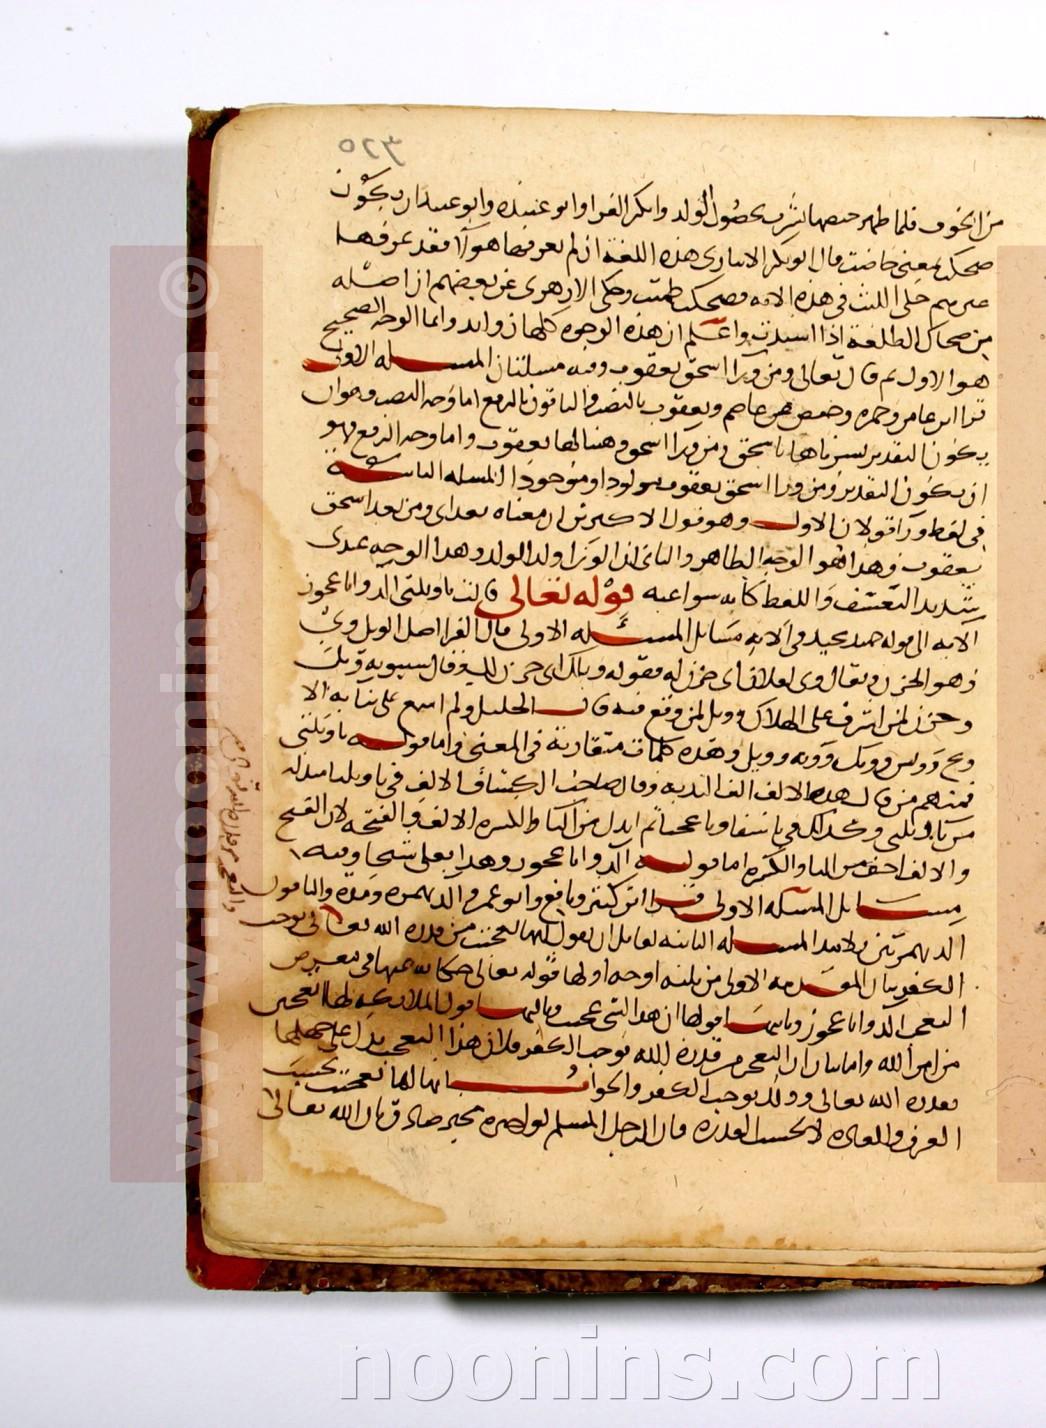 ٣٢٥
من الخوف فلما ظهر حيضها بشرت بحصول الولد وانكر الفرا وابو عبيده وابو عبيد ان يكون
ضحكت بمعنى حاضت قال ابو بكر الانباري هذه اللغة ان لم يعرفها هؤلاء فقد عرفها
غيرهم حكى الليث في هذه الايه فضحكت طمثت وحكى الازهري عن بعضهم ان اصله
من ضحاك الطلعة اذا انشقت واعلم ان هذه الوجوه كلها زوايد وانما الوجه الصحيح
هو الاول ثم قال تعالى ومن ورا اسحق يعقوب وفيه مسلتان المسله الاولى
قرا ابن عامر وحمزه وحفص عن عاصم ويعقوب بالنصب والباقون بالرفع اما وجه النصب فهو ان
يكون التقدير بشرناها باسحق ومن ورا اسحق وهبنا لها يعقوب واما وجه الرفع فهو
ان يكون التقدير ومن ورا اسحق يعقوب مولود او موجود المسله الثانية
في لفظ ورا قولان الاول وهو قول الاكثرين ان معناه بعد اي ومن بعد اسحق
يعقوب وهذا هو الوجه الظاهر والثاني ان الورا ولد الولد وهذا الوجه عندي
شديد التعسف واللفظ كانه ينبو عنه قوله تعالى قالت ياويلتى االد وانا عجوز
الايه الى قوله حميد مجيد وفي الايه مسايل المسئله الاولى قال الفرا اصل الويل وي
وهو الحزن ويقال وي لفلان اي حزن له فقوله ويلك اي حزن لك وقال سيبويه ويك
وحزن لمن اشرف على الهلاك وويل لمن وقع فيه قال الخليل ولم اسمع على بنائه الا
ويح وويس وويك وويه وويل وهذه كلمات متقاربة في المعنى واما قوله ياويلتى
فمنهم من قال هذه الالف الف الندبه وقال صاحب الكشاف الالف في ياويلتا مبدله
من ياويلتي وكذلك في يا اسفا ويا عجبا ثم ابدل من اليا والكسره الالف والفتحه لان الفتح
والالف اخف من اليا والكسره اما قوله االد وانا عجوز وهذا بعلي شيخا وفيه
مسايل المسله الاولى قرا ابن كثير ونافع وابو عمرو االد بهمزه ومده والباقون
االد بهمزتين بلا مد المسله الثانيه لقايل ان يقول انها تعجبت من قدره الله تعالى يوجب
الكفر بيان المقدمه الاولى من ثلثه اوجه اولها قوله تعالى حكاية عنها في معرض
التعجب االد وانا عجوز وثانيها قولها ان هذا لشي عجيب وثالثها قول الملايكه لها اتعجبين
من امر الله واما بيان ان التعجب من قدرة الله يوجب الكفر فلان هذا التعجب يدل على جهلها
بقدره الله تعالى وذلك يوجب الكفر والجواب انها انما تعجبت بحسب
العرف والعاده لا بحسب القدره فان الرجل المسلم لو اخبره مخبر صادق بان الله تعالى
والتعجب من قدرة الله تعالى
© www.noonins.com
noonins.com